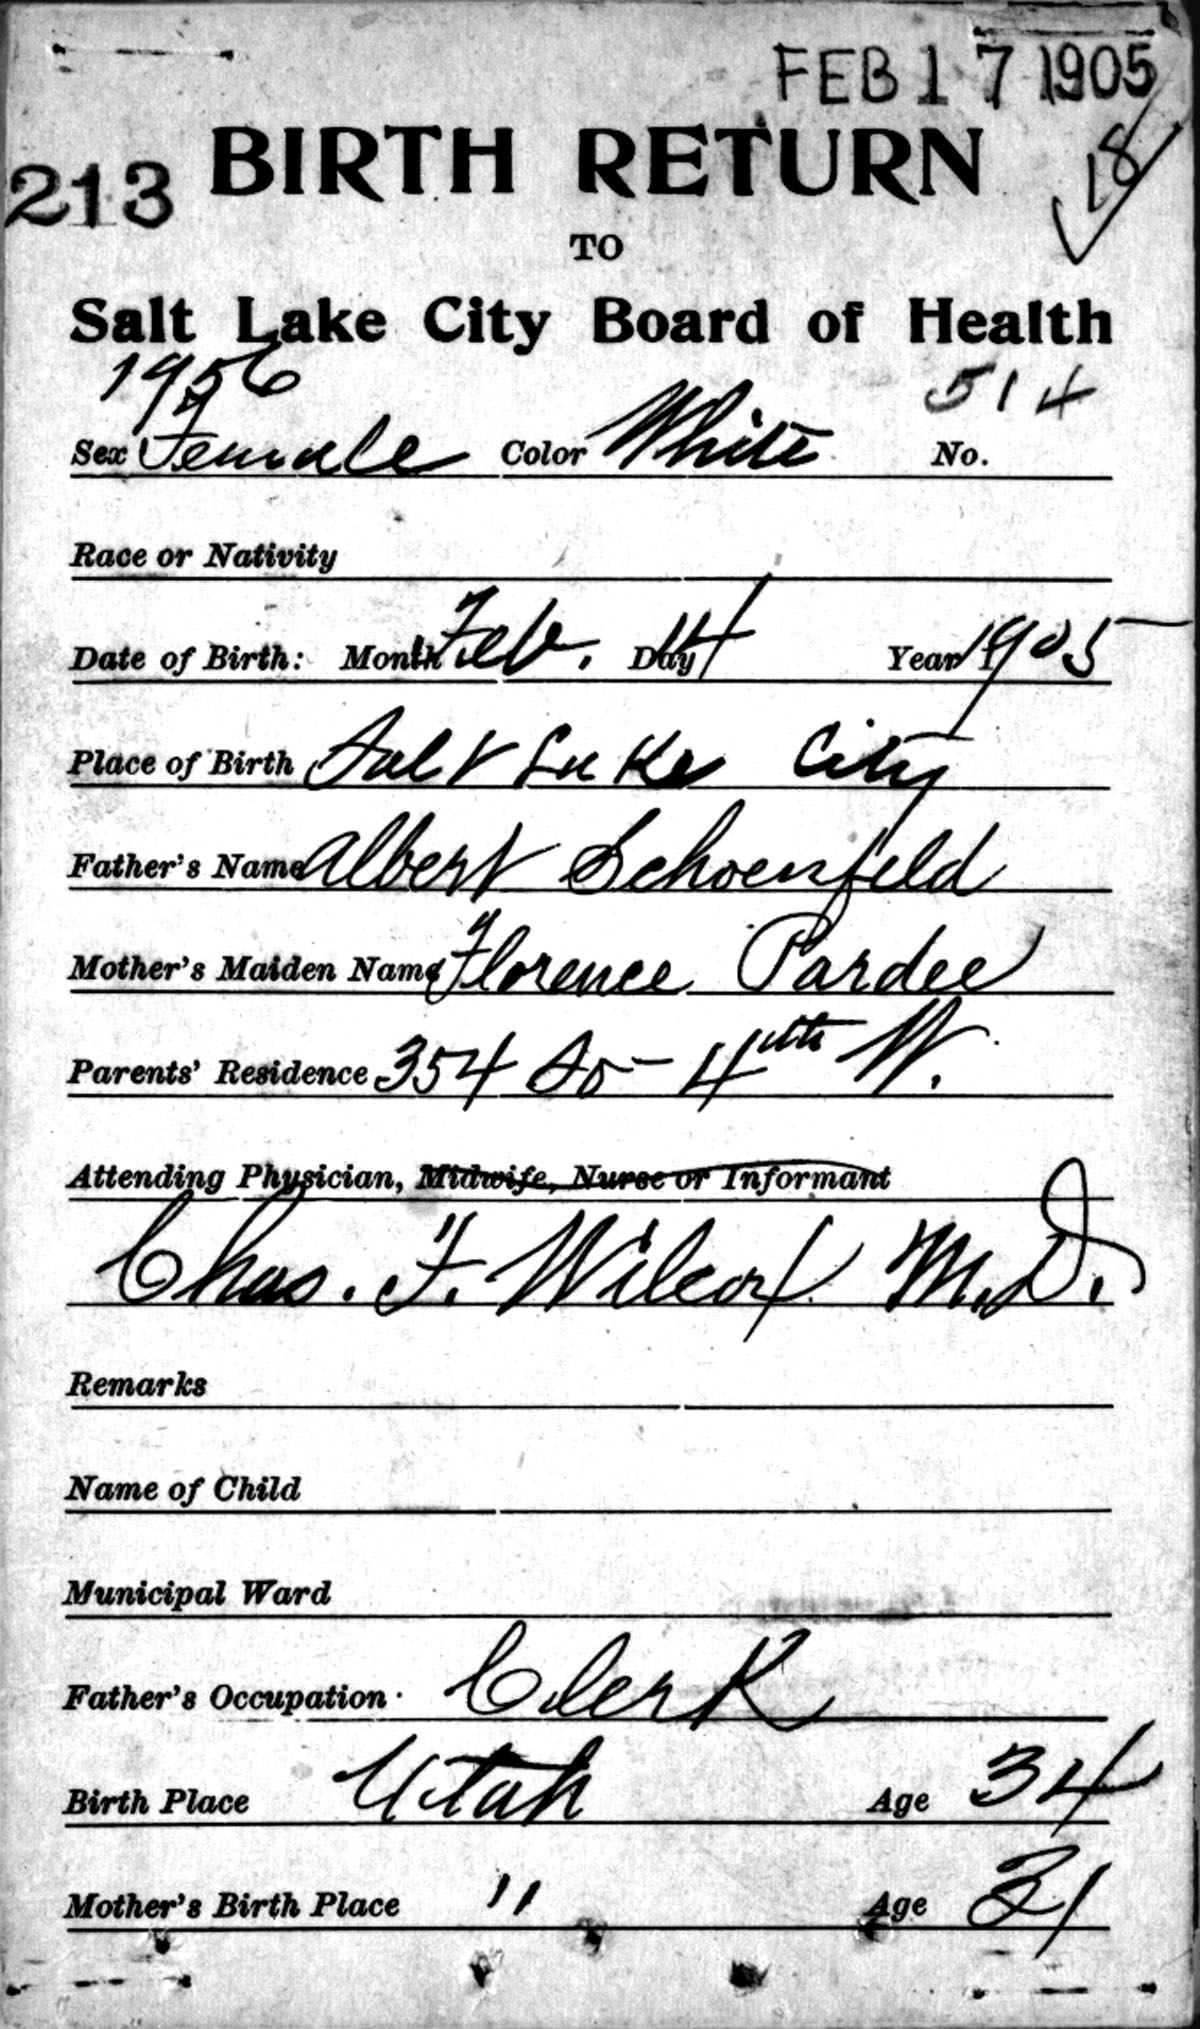 FEB 17 1905
213 BIRTH RETURN 18
TO
Salt Lake City Board of Health
1956 514
Sex Female Color White No.
Race or Nativity
Date of Birth: Month Feb. Day 14 Year 1905
Place of Birth Salt Lake City
Father's Name Albert Schoenfeld
Mother's Maiden Name Florence Pardee
Parents' Residence 354 So - 4th W.
Attending Physician, Midwife, Nurse or Informant
Chas. F. Wilcox M.D.
Remarks
Name of Child
Municipal Ward
Father's Occupation Clerk
Birth Place Utah Age 34
Mother's Birth Place " Age 31